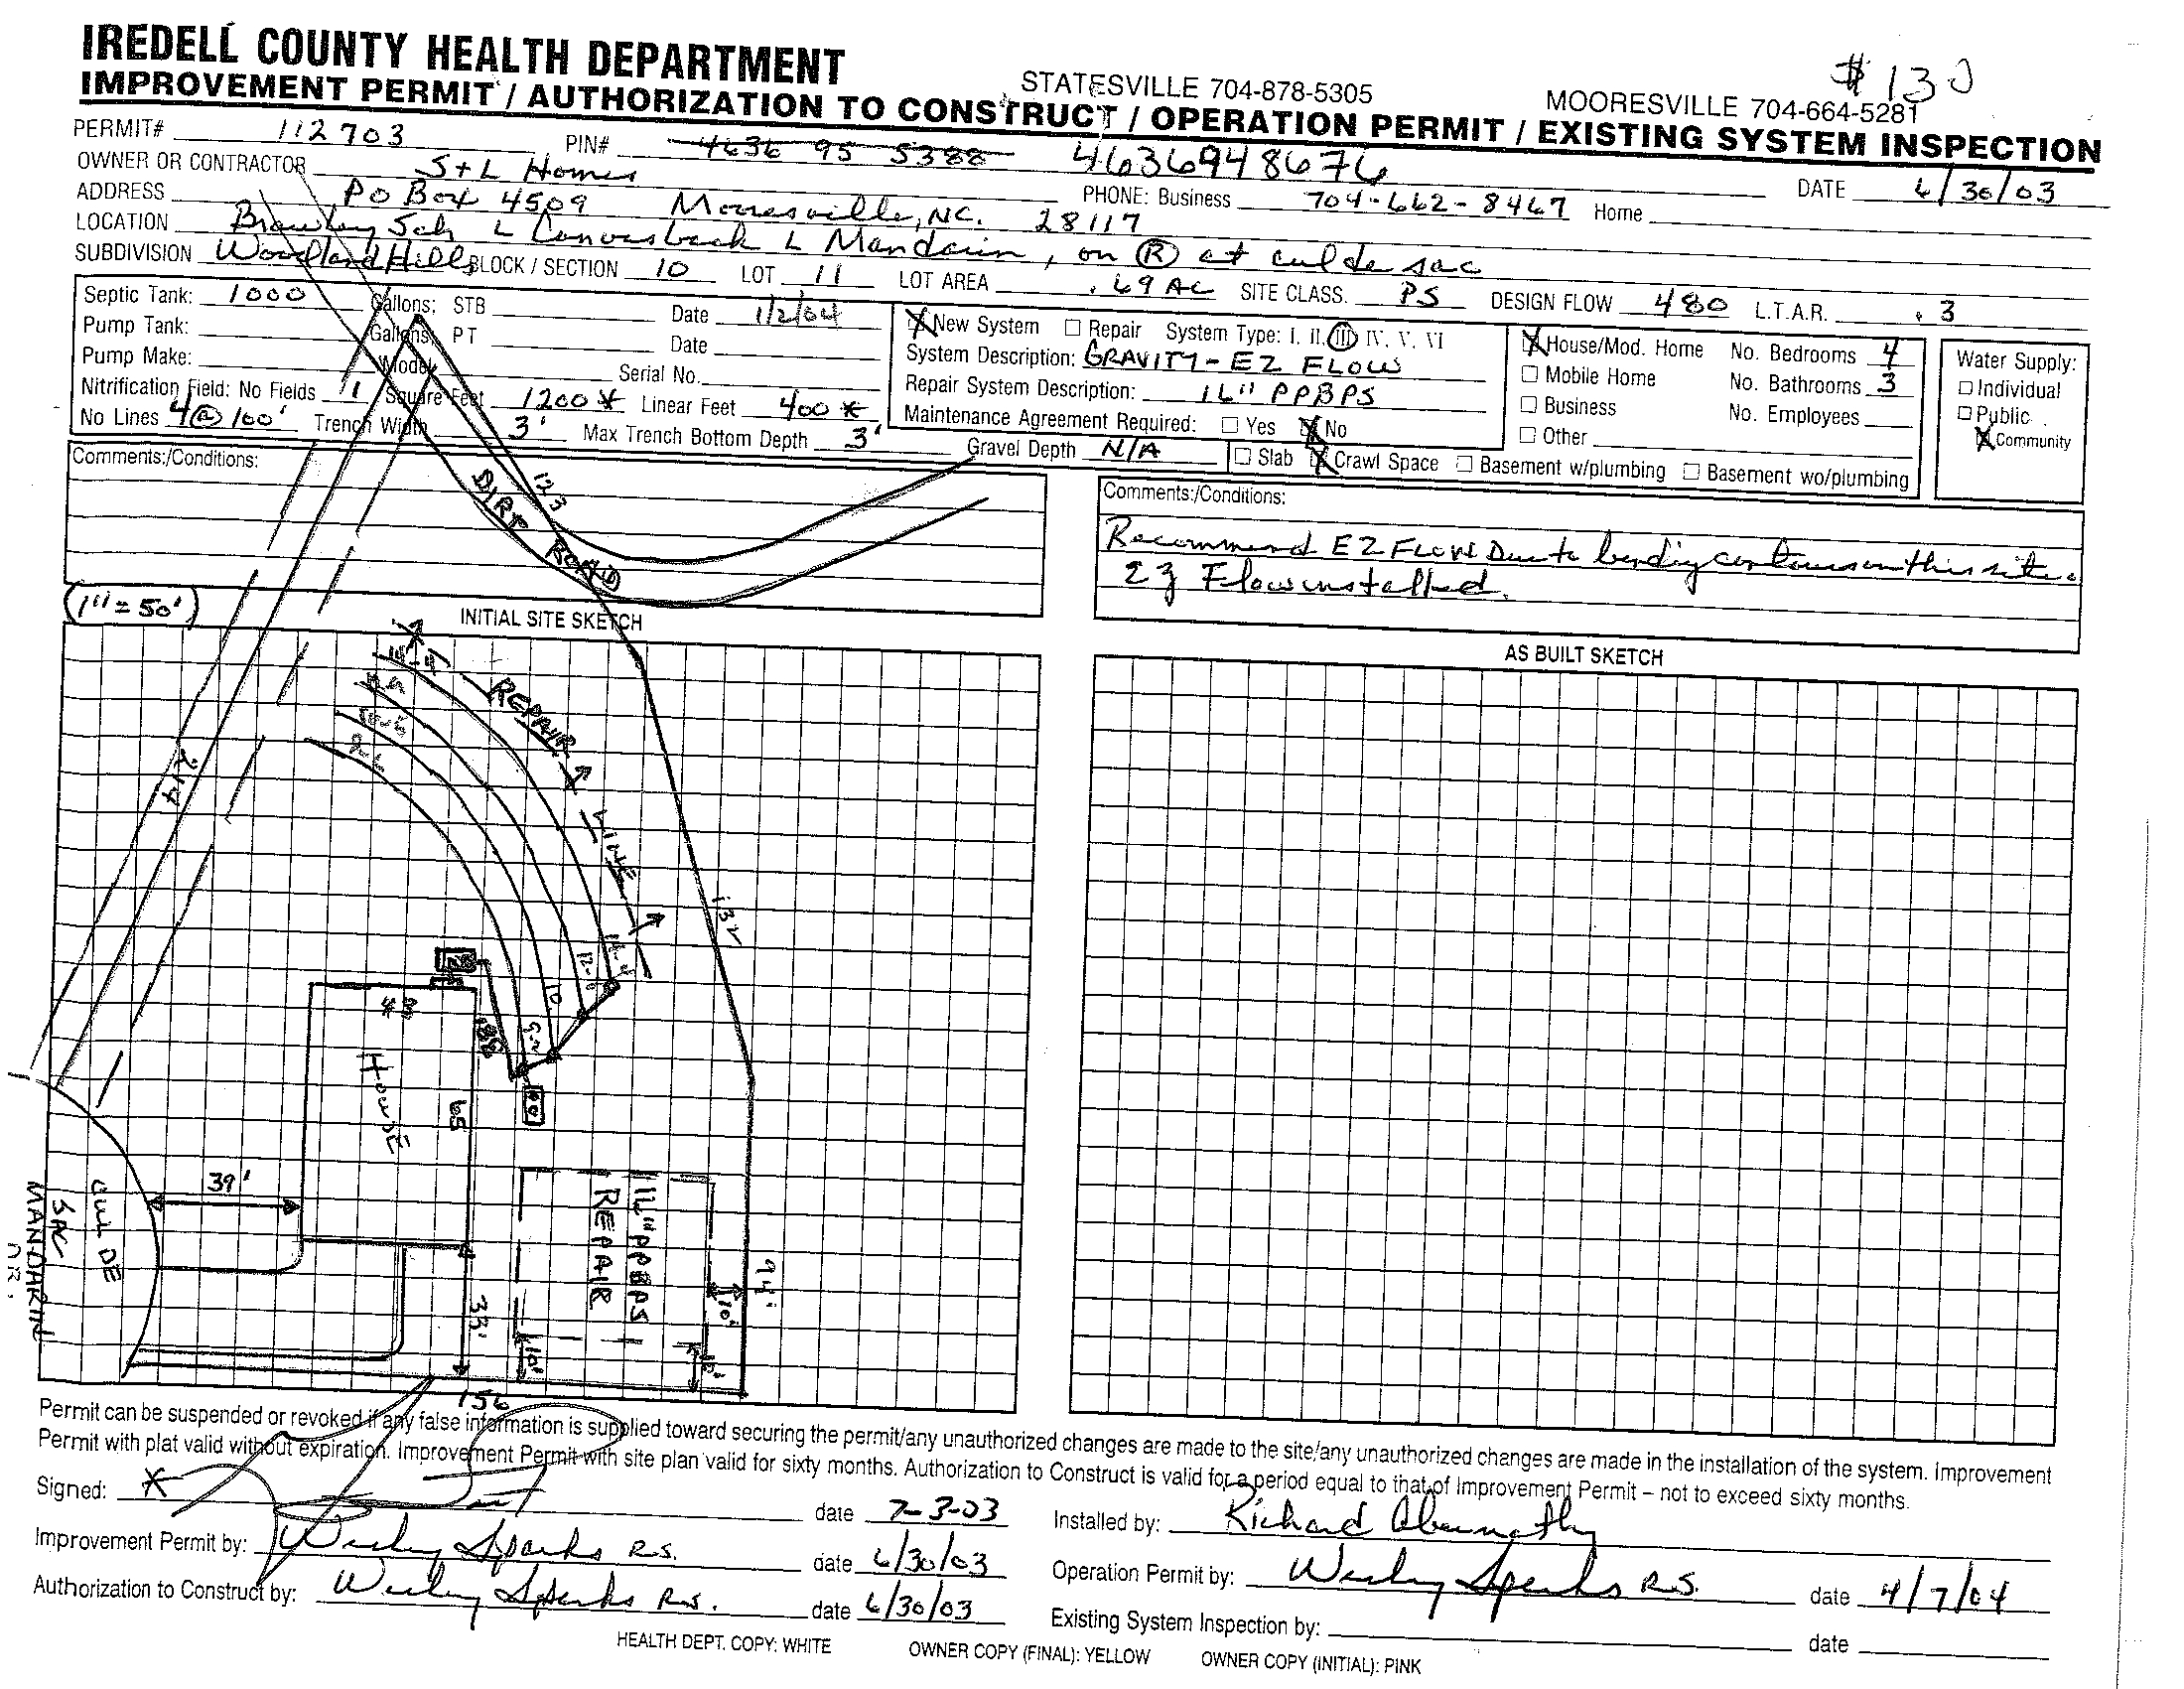 IREDELL COUNTY HEALTH DEPARTMENT
STATESVILLE 704-878-5305 MOORESVILLE 704-664-5281 $130
IMPROVEMENT PERMIT / AUTHORIZATION TO CONSTRUCT / OPERATION PERMIT / EXISTING SYSTEM INSPECTION
PERMIT# 112703 PIN# 4636 95 5388 4636948676
OWNER OR CONTRACTOR S+L Homes DATE 6/30/03
ADDRESS PO Box 4509 Mooresville, NC. 28117 PHONE: Business 704-662-8467 Home
LOCATION Brawley Sch L Canvasback L Mandarin, on R at cul de sac
SUBDIVISION Woodland Hills BLOCK / SECTION 10 LOT 11 LOT AREA .69 AC SITE CLASS. PS DESIGN FLOW 480 L.T.A.R. .3
Septic Tank: 1000 Gallons: STB Date 1/2/04
Pump Tank: Gallons: PT Date
Pump Make: Model Serial No.
Nitrification Field: No Fields 1 Square Feet 1200 * Linear Feet 400 *
No Lines 4@100' Trench Width 3' Max Trench Bottom Depth 3' Gravel Depth N/A
X New System Repair System Type: I, II, III IV, V, VI
System Description: GRAVITY - EZ FLOW
Repair System Description: 16" PPBPS
Maintenance Agreement Required: Yes X No
Slab X Crawl Space Basement w/plumbing Basement wo/plumbing
X House/Mod. Home No. Bedrooms 4
Mobile Home No. Bathrooms 3
Business No. Employees
Other
Water Supply:
Individual
Public
X Community
Comments:/Conditions:
DIRT ROAD
123
Comments:/Conditions:
Recommend EZ FLOW Due to bending contours on this site.
EZ Flow installed.
(1"=50')
INITIAL SITE SKETCH
AS BUILT SKETCH
REPAIR
LINE
214
132
10
HOUSE
65
39'
CUL DE
SAC
MANDARIN
DR.
16" PPBPS
REPAIR
94'
10'
33'
10'
10'
156
Permit can be suspended or revoked if any false information is supplied toward securing the permit/any unauthorized changes are made to the site/any unauthorized changes are made in the installation of the system. Improvement
Permit with plat valid without expiration. Improvement Permit with site plan valid for sixty months. Authorization to Construct is valid for a period equal to that of Improvement Permit – not to exceed sixty months.
Signed: X date 7-3-03 Installed by: Richard Abernathy
Improvement Permit by: Wesley Sparks R.S. date 6/30/03 Operation Permit by: Wesley Sparks R.S. date 4/7/04
Authorization to Construct by: Wesley Sparks R.S. date 6/30/03 Existing System Inspection by: date
HEALTH DEPT. COPY: WHITE OWNER COPY (FINAL): YELLOW OWNER COPY (INITIAL): PINK